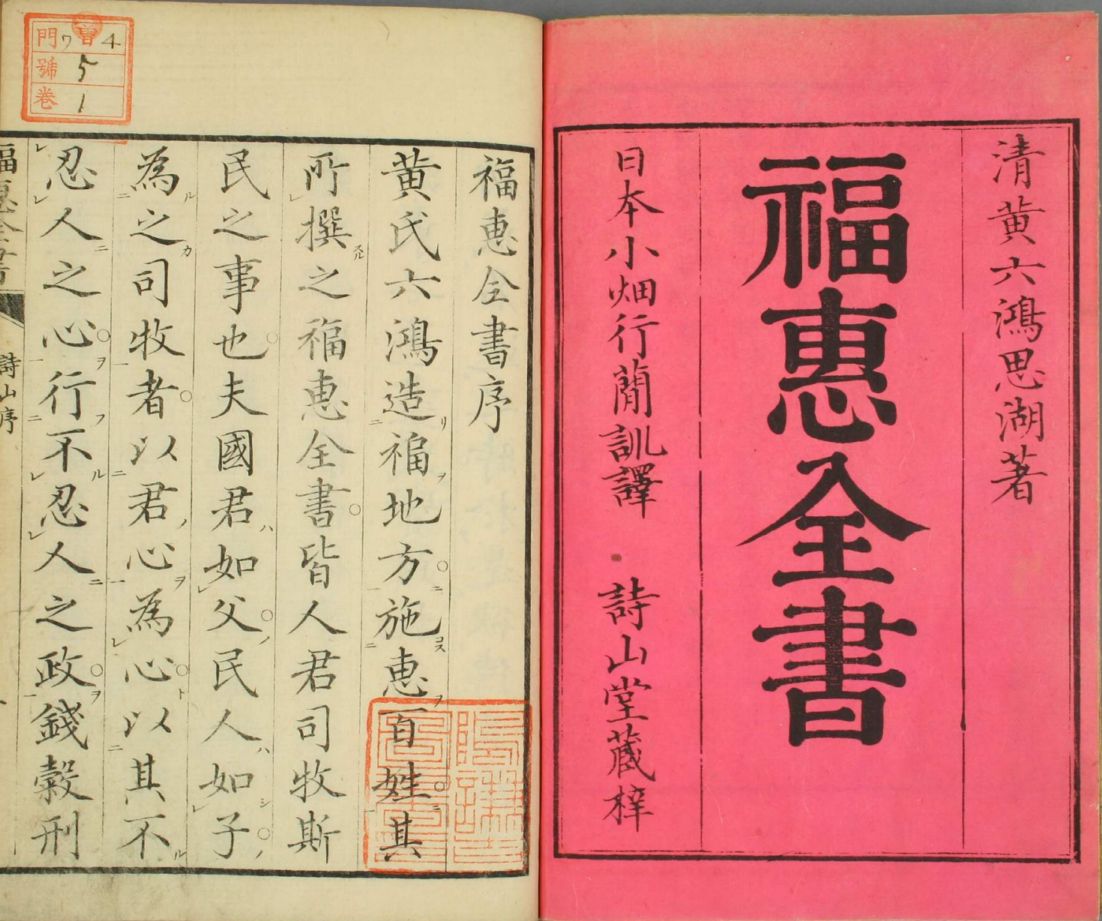 清黄六鴻思湖著
福惠全書
日本小畑行簡訓譯 詩山堂蔵梓
福惠全書序
黄氏六鴻造福地方施惠百姓其
所撰之福惠全書皆人君司牧斯
民之事也夫國君如父民人如子
為之司牧者以君心為心以其不
忍人之心行不忍人之政錢穀刑
福惠全書 詩山序
門 ワ 4
號 5
卷 1